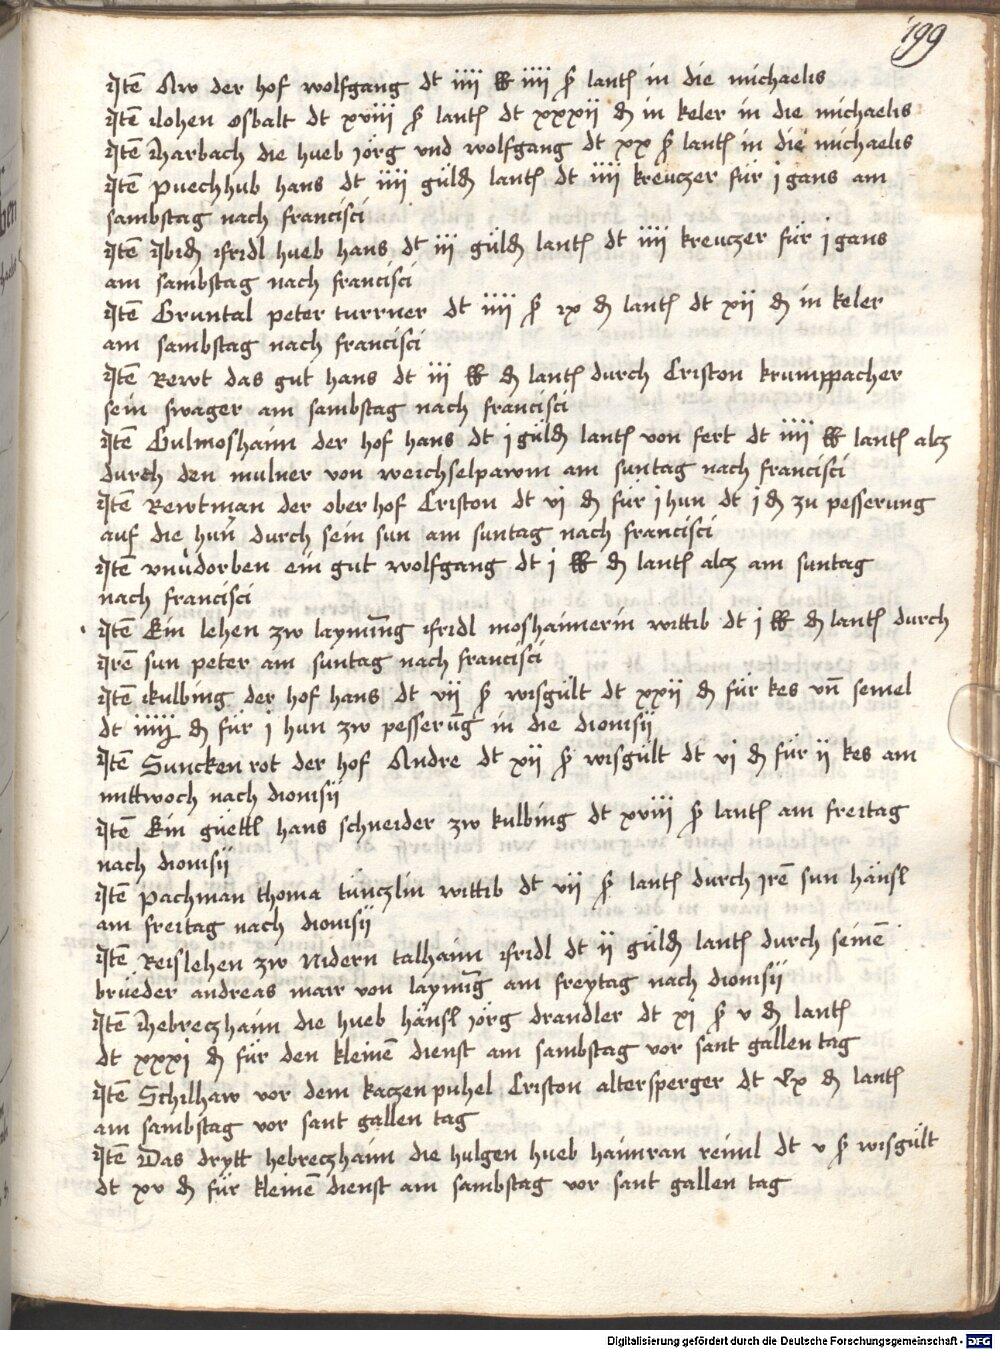 199
Itē Aw der hof wolfgang dt iiii ℔ iiii ß lantß in die michaelis
Itē Lohen osbalt dt xviii ß lantß dt xxxii ₰ in keler in die michaelis
Itē Harbach die hueb Jörg vnd wolfgang dt xx ß lantß in die michaelis
Itē puechhub hans dt iiii guld lantß dt iiii kreuczer für j gans am
sambstag nach francisci
Itē Ibid fridl hueb hans dt iii güld lantß dt iiii kreuczer für j gans
am sambstag nach francisci
Itē Gruntal peter turrner dt iiii ß ix ₰ lantß dt xii ₰ in keler
am sambstag nach francisci
Itē Rewt das gut hans dt iii ℔ ₰ lantß durch Criston krumppacher
sein swager am sambstag nach francisci
Itē Gulmoshaim der hof hans dt j güld lantß von fert dt iiii ℔ lantß alcz
durch den mulner von weichselpawm am suntag nach francisci
Itē Rewtman der ober hof Criston dt vj ₰ für j hun dt j ₰ zu pesserung
auf die hun̄ durch sein sun am suntag nach francisci
Itē vnuerdorben ein gut wolfgang dt j ℔ ₰ lantß alcz am suntag
nach francisci
Itē Ein lehen zw laymīng fridl moshaimerin wittib dt j ℔ ₰ lantß durch
Irē sun peter am suntag nach francisci
Itē kulbing der hof hans dt vii ß wisgült dt xxii ₰ für kes vn̄ semel
dt iiii ₰ für j hun zw pesserūg in die dionisij
Itē Suncken rot der hof Andre dt xii ß wisgült dt vj ₰ für ii kes am
mittwoch nach dionisij
Itē Ein güettl hans schneider zw kulbing dt xviii ß lantß am freitag
nach dionisij
Itē pachman thoma tünczlin wittib dt vii ß lantß durch Irē sun hänsl
am freitag nach dionisij
Itē Reislehen zw Nidern talhaim fridl dt ii güld lantß durch seinē
brüeder andreas marr von laymīg am freytag nach dionisij
Itē Hebreczhaim die hueb hänsl Jörg drandler dt xj ß v ₰ lantß
dt xxxj ₰ für den kleinē dienst am sambstag vor sant gallen tag
Itē Schilhaw vor dem kaczenpuhel Criston altersperger dt lx ₰ lantß
am sambstag vor sant gallen tag
Itē Das drytt hebreczhaim die hulgen hueb haimran reiml dt v ß wisgült
dt xv ₰ für kleinē dienst am sambstag vor sant gallen tag
Digitalisierung gefördert durch die Deutsche Forschungsgemeinschaft - DFG